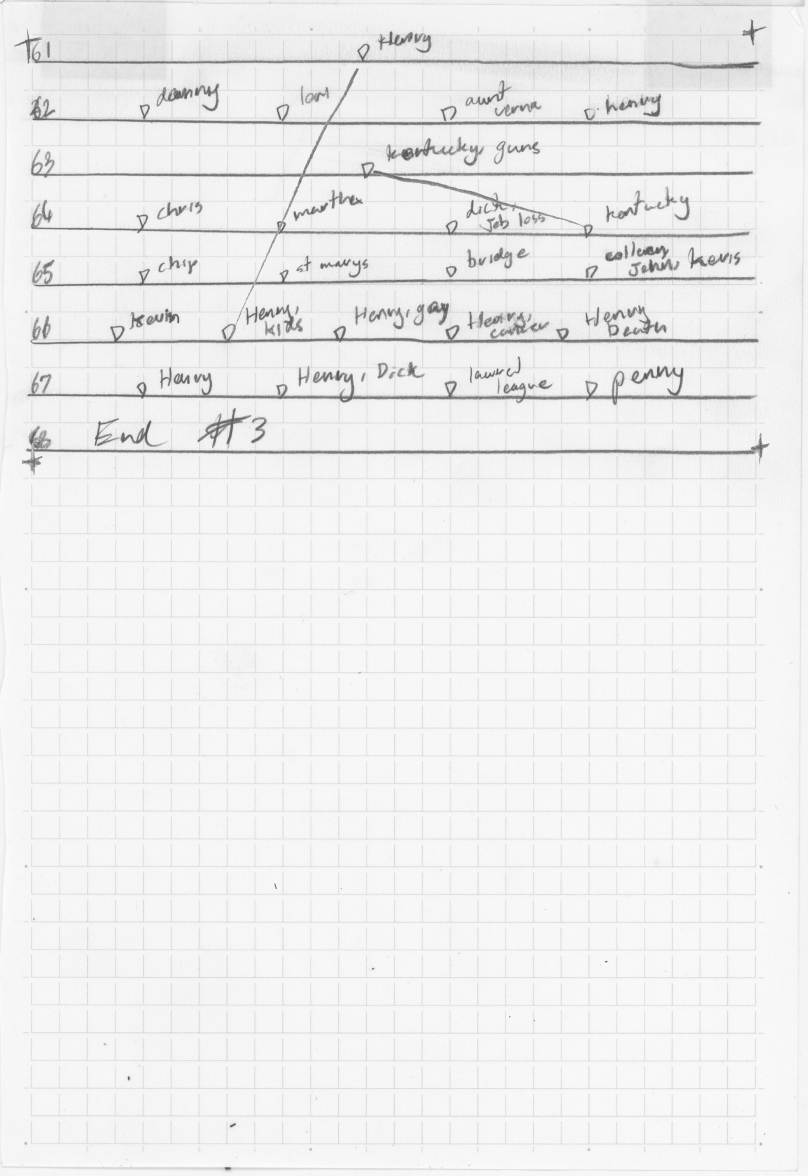 61 Henry
62 danny lori aunt verna henry
63 kentucky, guns
64 chris martha dick, job loss kentucky
65 chip st marys bridge colleen, John, Kevis
66 kevin Henry, kids Henry, gay Henry, cancer Henry Death
67 Henry Henry, Dick league penny
68 End #3